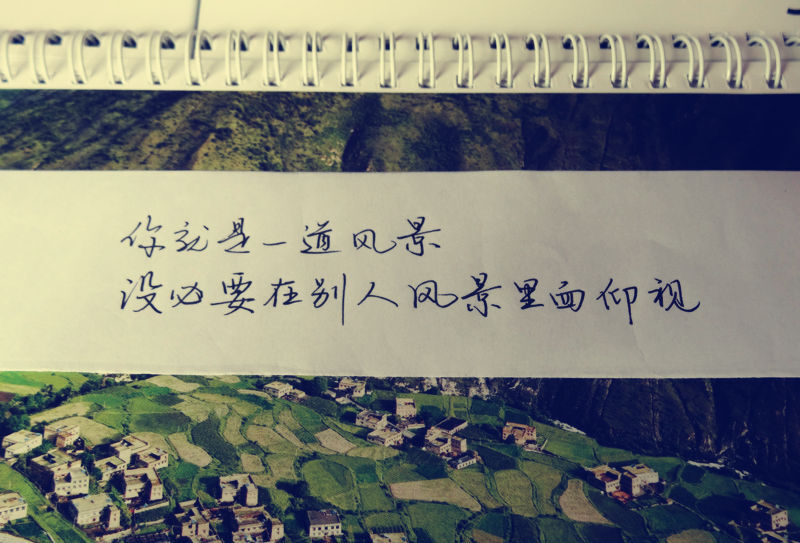 你就是一道风景
没必要在别人风景里面仰视